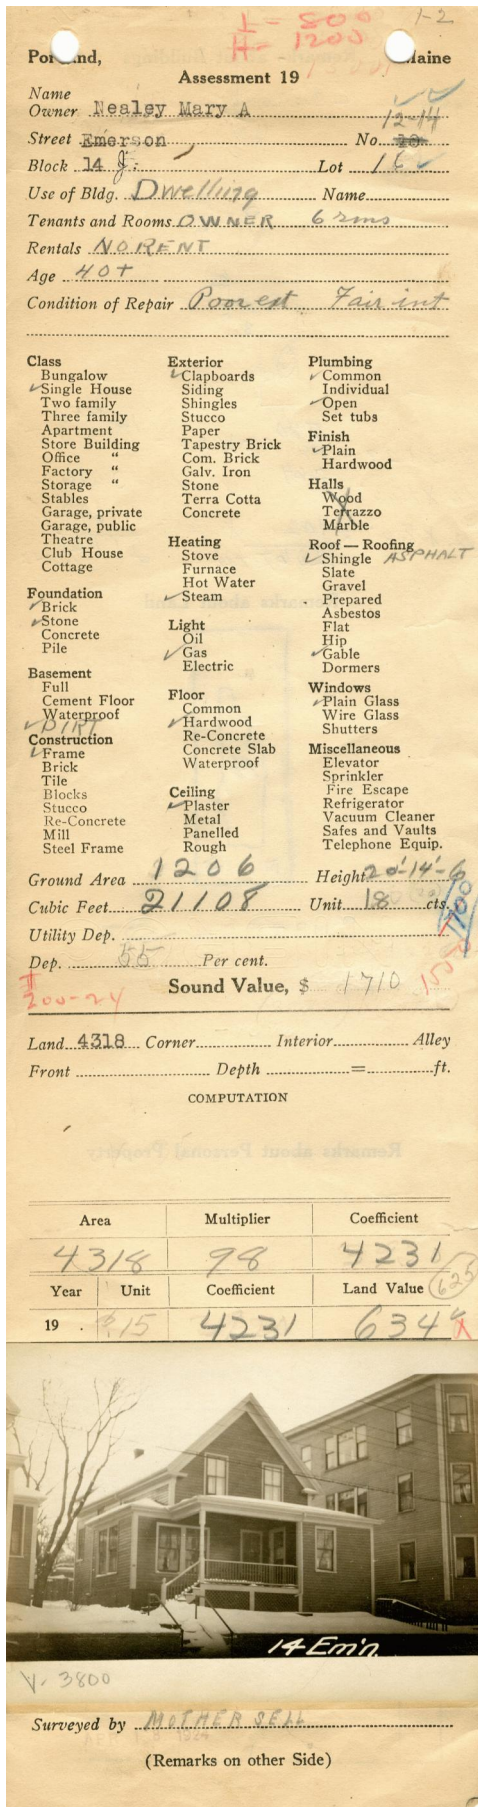 L = 800
H = 1200
1-2
Portland, Maine
Assessment 19
Name
Owner Nealey Mary A
12-14
Street Emerson No. 10
Block 14 J. Lot 16
Use of Bldg. Dwelling Name
Tenants and Rooms OWNER 6 rms
Rentals NO RENT
Age 40+
Condition of Repair Poor ext Fair int
Class
Bungalow
✓Single House
Two family
Three family
Apartment
Store Building
Office "
Factory "
Storage "
Stables
Garage, private
Garage, public
Theatre
Club House
Cottage
Foundation
✓Brick
✓Stone
Concrete
Pile
Basement
Full
Cement Floor
Waterproof
✓DIRT
Construction
✓Frame
Brick
Tile
Blocks
Stucco
Re-Concrete
Mill
Steel Frame
Exterior
✓Clapboards
Siding
Shingles
Stucco
Paper
Tapestry Brick
Com. Brick
Galv. Iron
Stone
Terra Cotta
Concrete
Heating
Stove
Furnace
Hot Water
✓Steam
Light
Oil
✓Gas
Electric
Floor
Common
✓Hardwood
Re-Concrete
Concrete Slab
Waterproof
Ceiling
✓Plaster
Metal
Panelled
Rough
Plumbing
✓Common
Individual
✓Open
Set tubs
Finish
✓Plain
Hardwood
Halls
Wood
Terrazzo
Marble
Roof — Roofing
✓Shingle ASPHALT
Slate
Gravel
Prepared
Asbestos
Flat
Hip
✓Gable
Dormers
Windows
✓Plain Glass
Wire Glass
Shutters
Miscellaneous
Elevator
Sprinkler
Fire Escape
Refrigerator
Vacuum Cleaner
Safes and Vaults
Telephone Equip.
Ground Area 1206 Height 20'-14'-6
Cubic Feet 21108 Unit 18 cts.
1700
Utility Dep.
Dep. 55 Per cent.
Sound Value, $ 1710
200-24
Land 4318 Corner Interior Alley
Front Depth = ft.
COMPUTATION
Area Multiplier Coefficient
4318 98 4231
Year Unit Coefficient Land Value 625
19 . $.15 4231 634
14 Em'n.
V- 3800
Surveyed by MOTHERSELL
(Remarks on other Side)